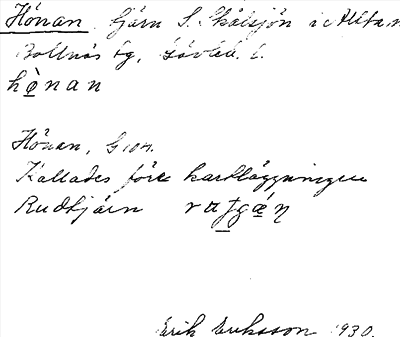 Hónan. Tjärn S. Skålsjön i Alfta sn
Bollnäs tg, Gävleb. l.
họ̀nan
Hónan, Grön.
Kallades före kartläggningen
Rudtjärn
Erik Eriksson 1930.